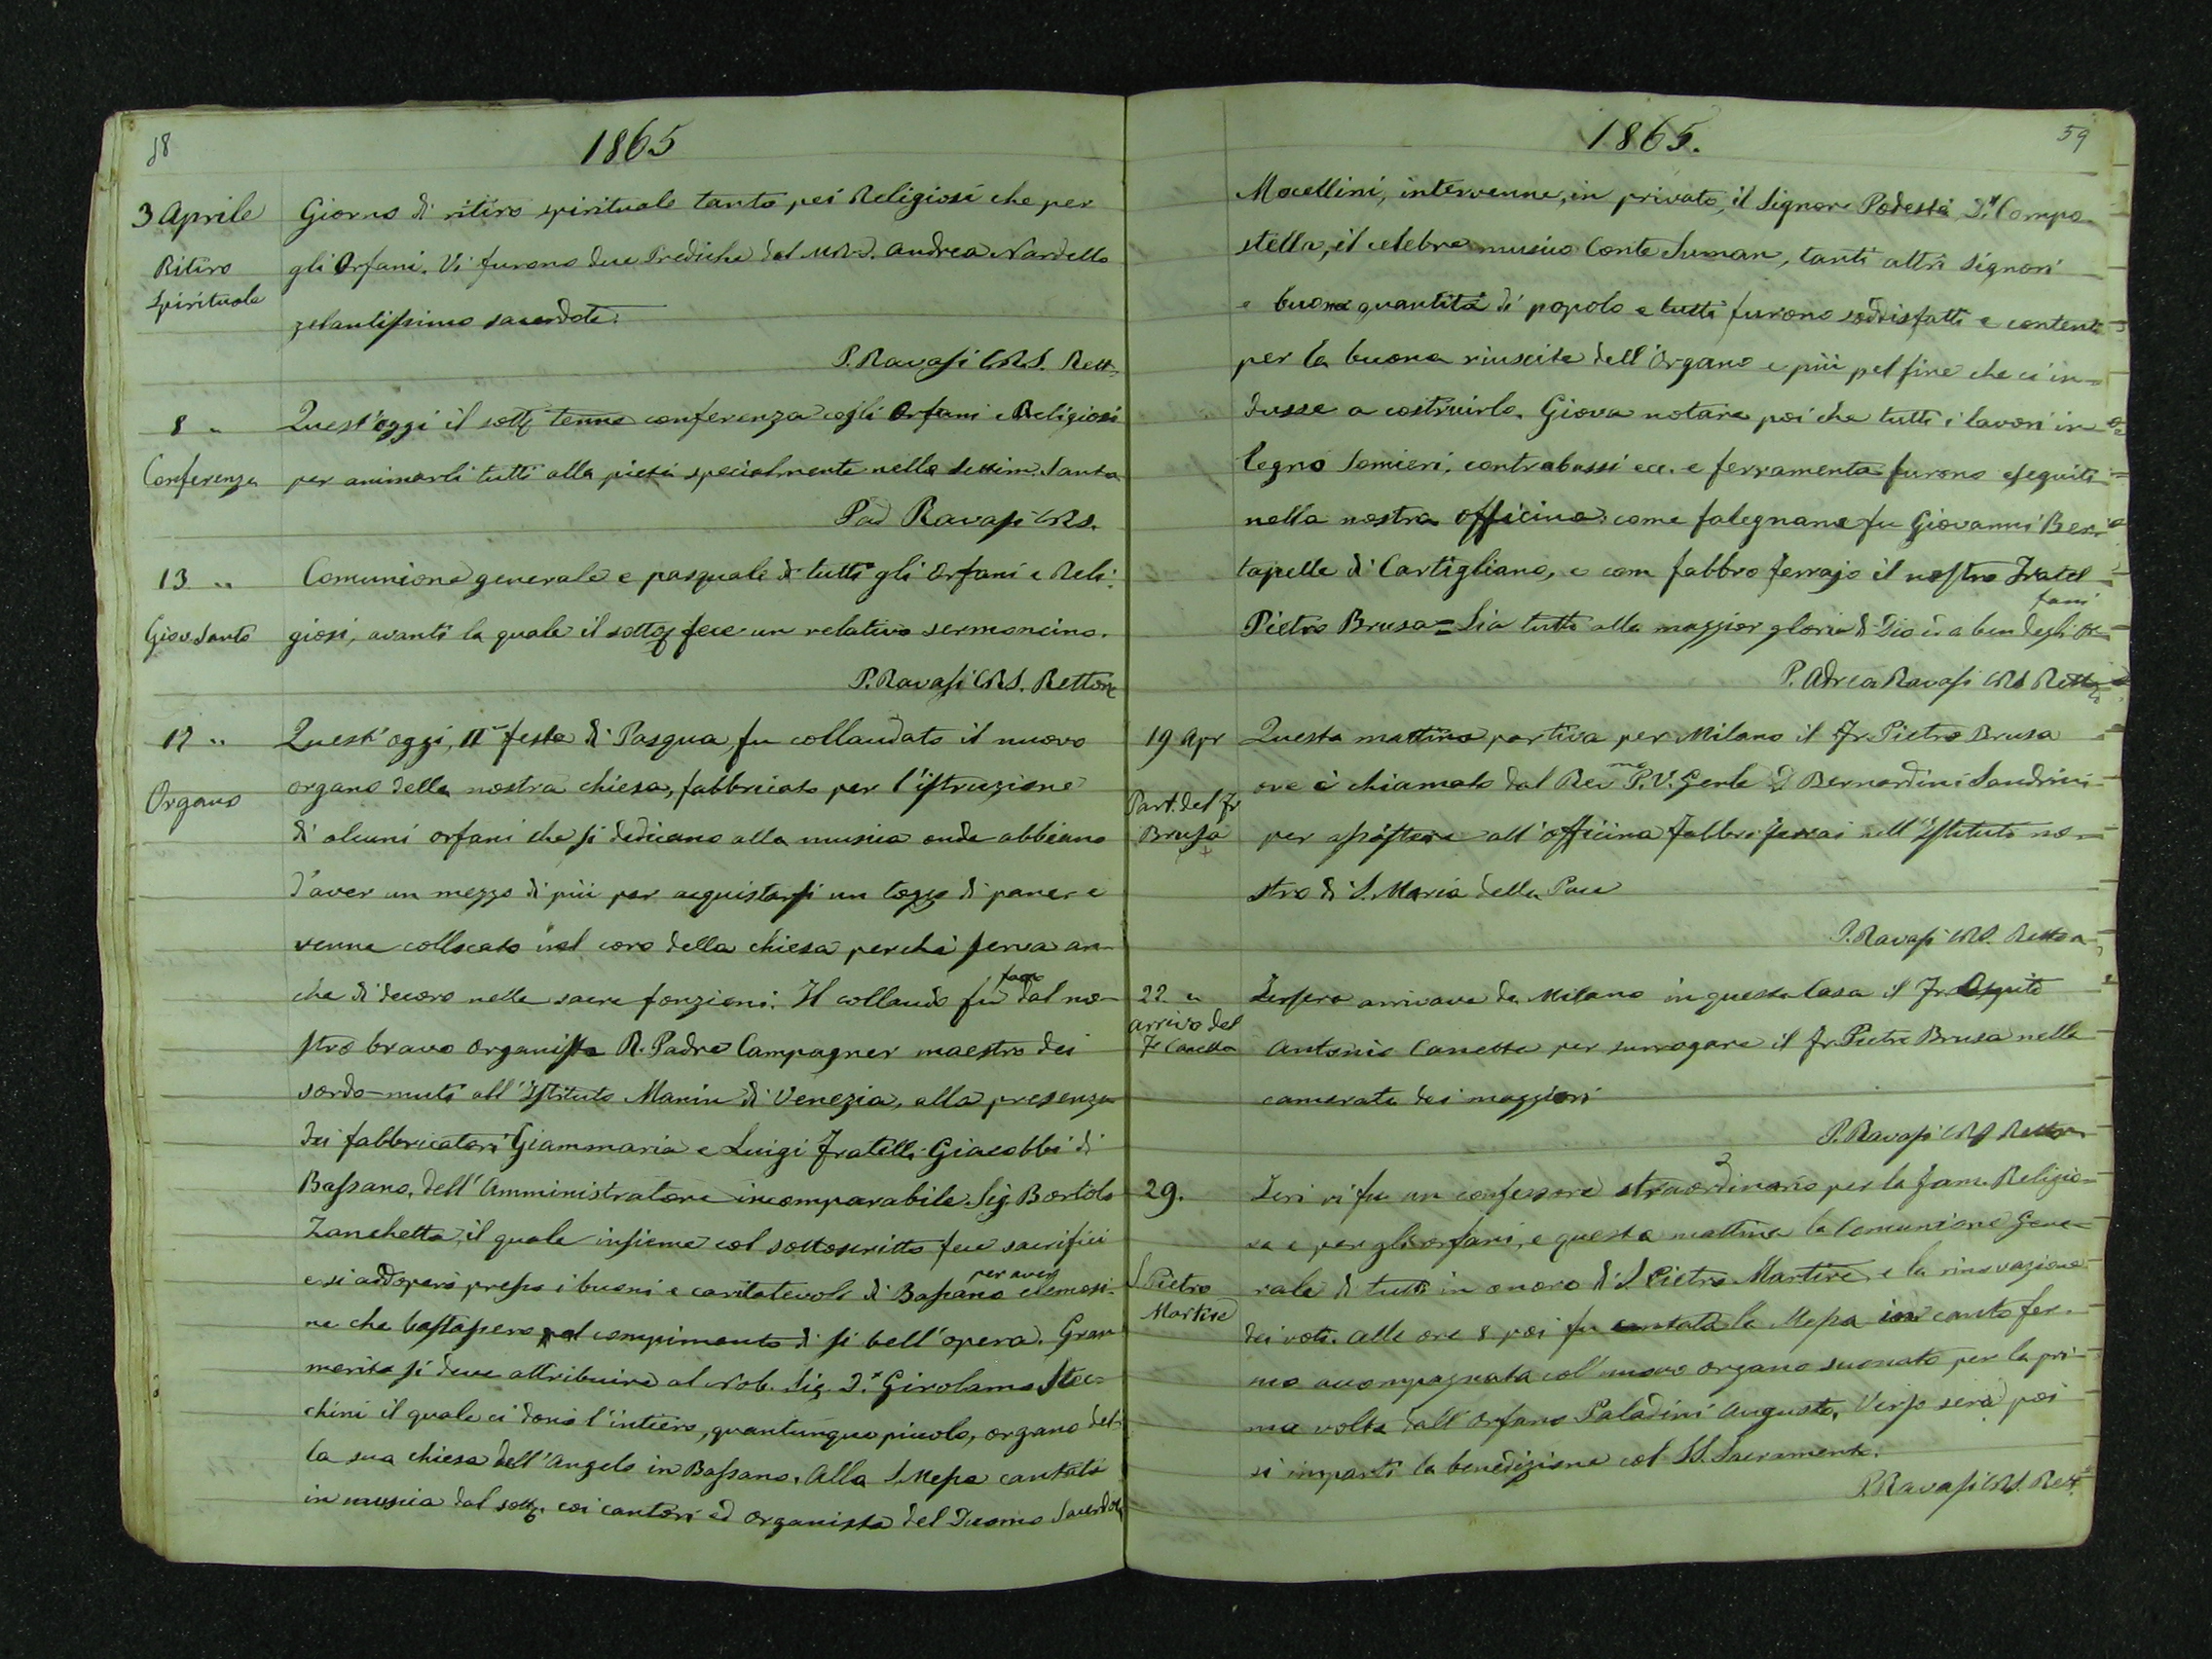 58
1865
3 Aprile
Ritiro
Spirituale
Giorno di ritiro spirituale tanto pei Religiosi che per
gli Orfani. Vi furono due Prediche dal M.R.D. Andrea Nardello
zelantissimo sacerdote.
P. Ravasi CRS. Rett.
8 "
Conferenza
Quest'oggi il sott. tenne conferenza cogli Orfani e Religiosi
per animarli tutti alla pietà specialmente nella Settim. Santa
Pad Ravasi CRS.
13 "
Giov. Santo
Comunione generale e pasquale di tutti gli Orfani e Reli-
giosi, avanti la quale il sotto fece un relativo sermoncino.
P. Ravasi CRS. Rettore
17 "
Organo
Quest'oggi, IIa festa di Pasqua fu collaudato il nuovo
organo della nostra chiesa, fabbricato per l'istruzione
di alcuni orfani che si dedicano alla musica onde abbiano
d'aver un mezzo di più per acquistarsi un tozzo di pane, e
venne collocato nel coro della chiesa perchè serva an-
che di decoro nelle sacre fonzioni. Il collaudo fu fatto dal no-
stro bravo Organista R. Padre Campagner maestro dei
sordo-muti all'Istituto Manin di Venezia, alla presenza
dei fabbricatori Giammaria e Luigi Fratelli Giacobbi di
Bassano, dell'Amministratore incomparabile Sig. Bortolo
Zanchetta, il quale insieme col sottoscritto fece sacrifici
e si addoperò presso i buoni e caritatevoli di Bassano per aver elemosi-
ne che bastassero pel compimento di sì bell'opera. Gran
merito si deve attribuire al Nob. Sig. Dr Girolamo Stec-
chini il quale ci donò l'intiero, quantunque piccolo, organo del-
la sua chiesa dell'Angelo in Bassano. Alla S. Messa cantata
in musica dal sott. coi cantori ed organista del Duomo Sacerdote
1865.
59
Mocellini, intervenne, in privato, il Signor Podestà Dr Compo-
stella, il celebre musico Conte Suman, tanti altri Signori
e buona quantità di popolo e tutti furono soddisfatti e contenti
per la buona riuscita dell'Organo e più pel fine che ci in-
dusse a costruirlo. Giova notare poi che tutti i lavori in
legno Somieri, contrabassi ecc. e ferramenta furono eseguiti
nella nostra officina: come falegname fu Giovanni Ber-
tapelle di Cartigliano, e com fabbro ferrajo il nostro Fratel
Pietro Brusa = Sia tutto alla maggior gloria di Dio e a ben degli Or-
fani
P. Adrea Ravasi CRS Rettor
19 Apr
Part. del Fr
Brusa
+
Questa mattina partiva per Milano il Fr. Pietro Brusa
ove è chiamato dal Revmo P. V. Genle D Bernardini Sandrini
per assistere all'officina fabbri ferrai nell'Istituto no-
stro di S. Maria della Pace
P. Ravasi CRS. Rettore
22. "
arrivo del
Fr Canetta
Jersera arrivava da Milano in questa Casa il Fr. Ospite
Antonio Canetta per surrogare il Fr. Pietro Brusa nella
camerata dei maggiori
P. Ravasi CRS Rettore
29.
S. Pietro
Martire
Jeri vi fu un confessore straordinario per la fam. Religio-
sa e per gli orfani, e questa mattina la Comunione Gene-
rale di tutti in onore di S. Pietro Martire e la rinovazione
dei voti. Alle ore 8 poi fu cantata la Messa in canto fer-
mo accompagnata col nuovo organo suonato per la pri-
ma volta dall'Orfano Paladini Augusto. Verso sera poi
si impartì la benedizione col SS. Sacramento.
P. Ravasi CRS. Rett.